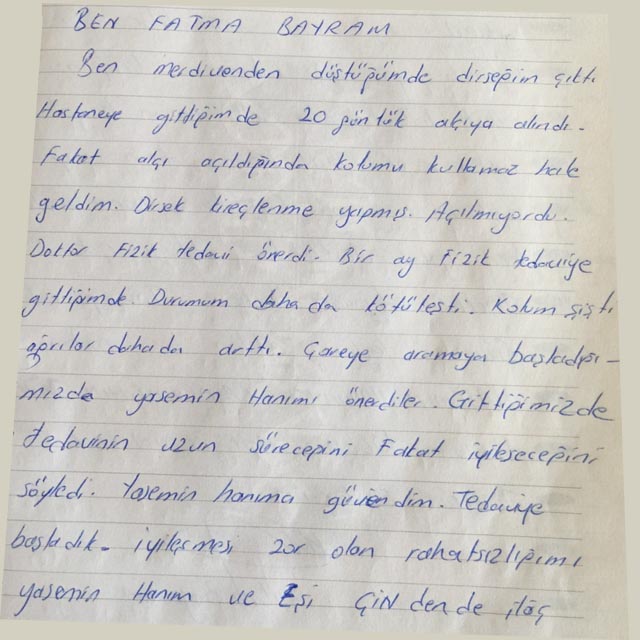 BEN FATMA BAYRAM
Ben merdivenden düştüğümde dirseğim çıktı
Hastaneye gittiğimde 20 günlük alçıya alındı.
Fakat alçı açıldığında kolumu kullamaz hale
geldim. Dirsek kireçlenme yapmış. Açılmıyordu.
Doktor Fizik tedavi önerdi. Bir ay Fizik tedaviye
gittiğimde Durumum daha da kötüleşti. Kolum şişti
ağrılar daha da arttı. Çareye aramaya başladığı-
mızda yasemin Hanımı önerdiler. Gittiğimizde
tedavinin uzun süreceğini Fakat iyileseceğini
söyledi. Yasemin hanıma güvendim. Tedaviye
başladık. iyileşmesi zor olan rahatsızlığımı
yasemin Hanım ve Eşi ÇiN den de ilaç